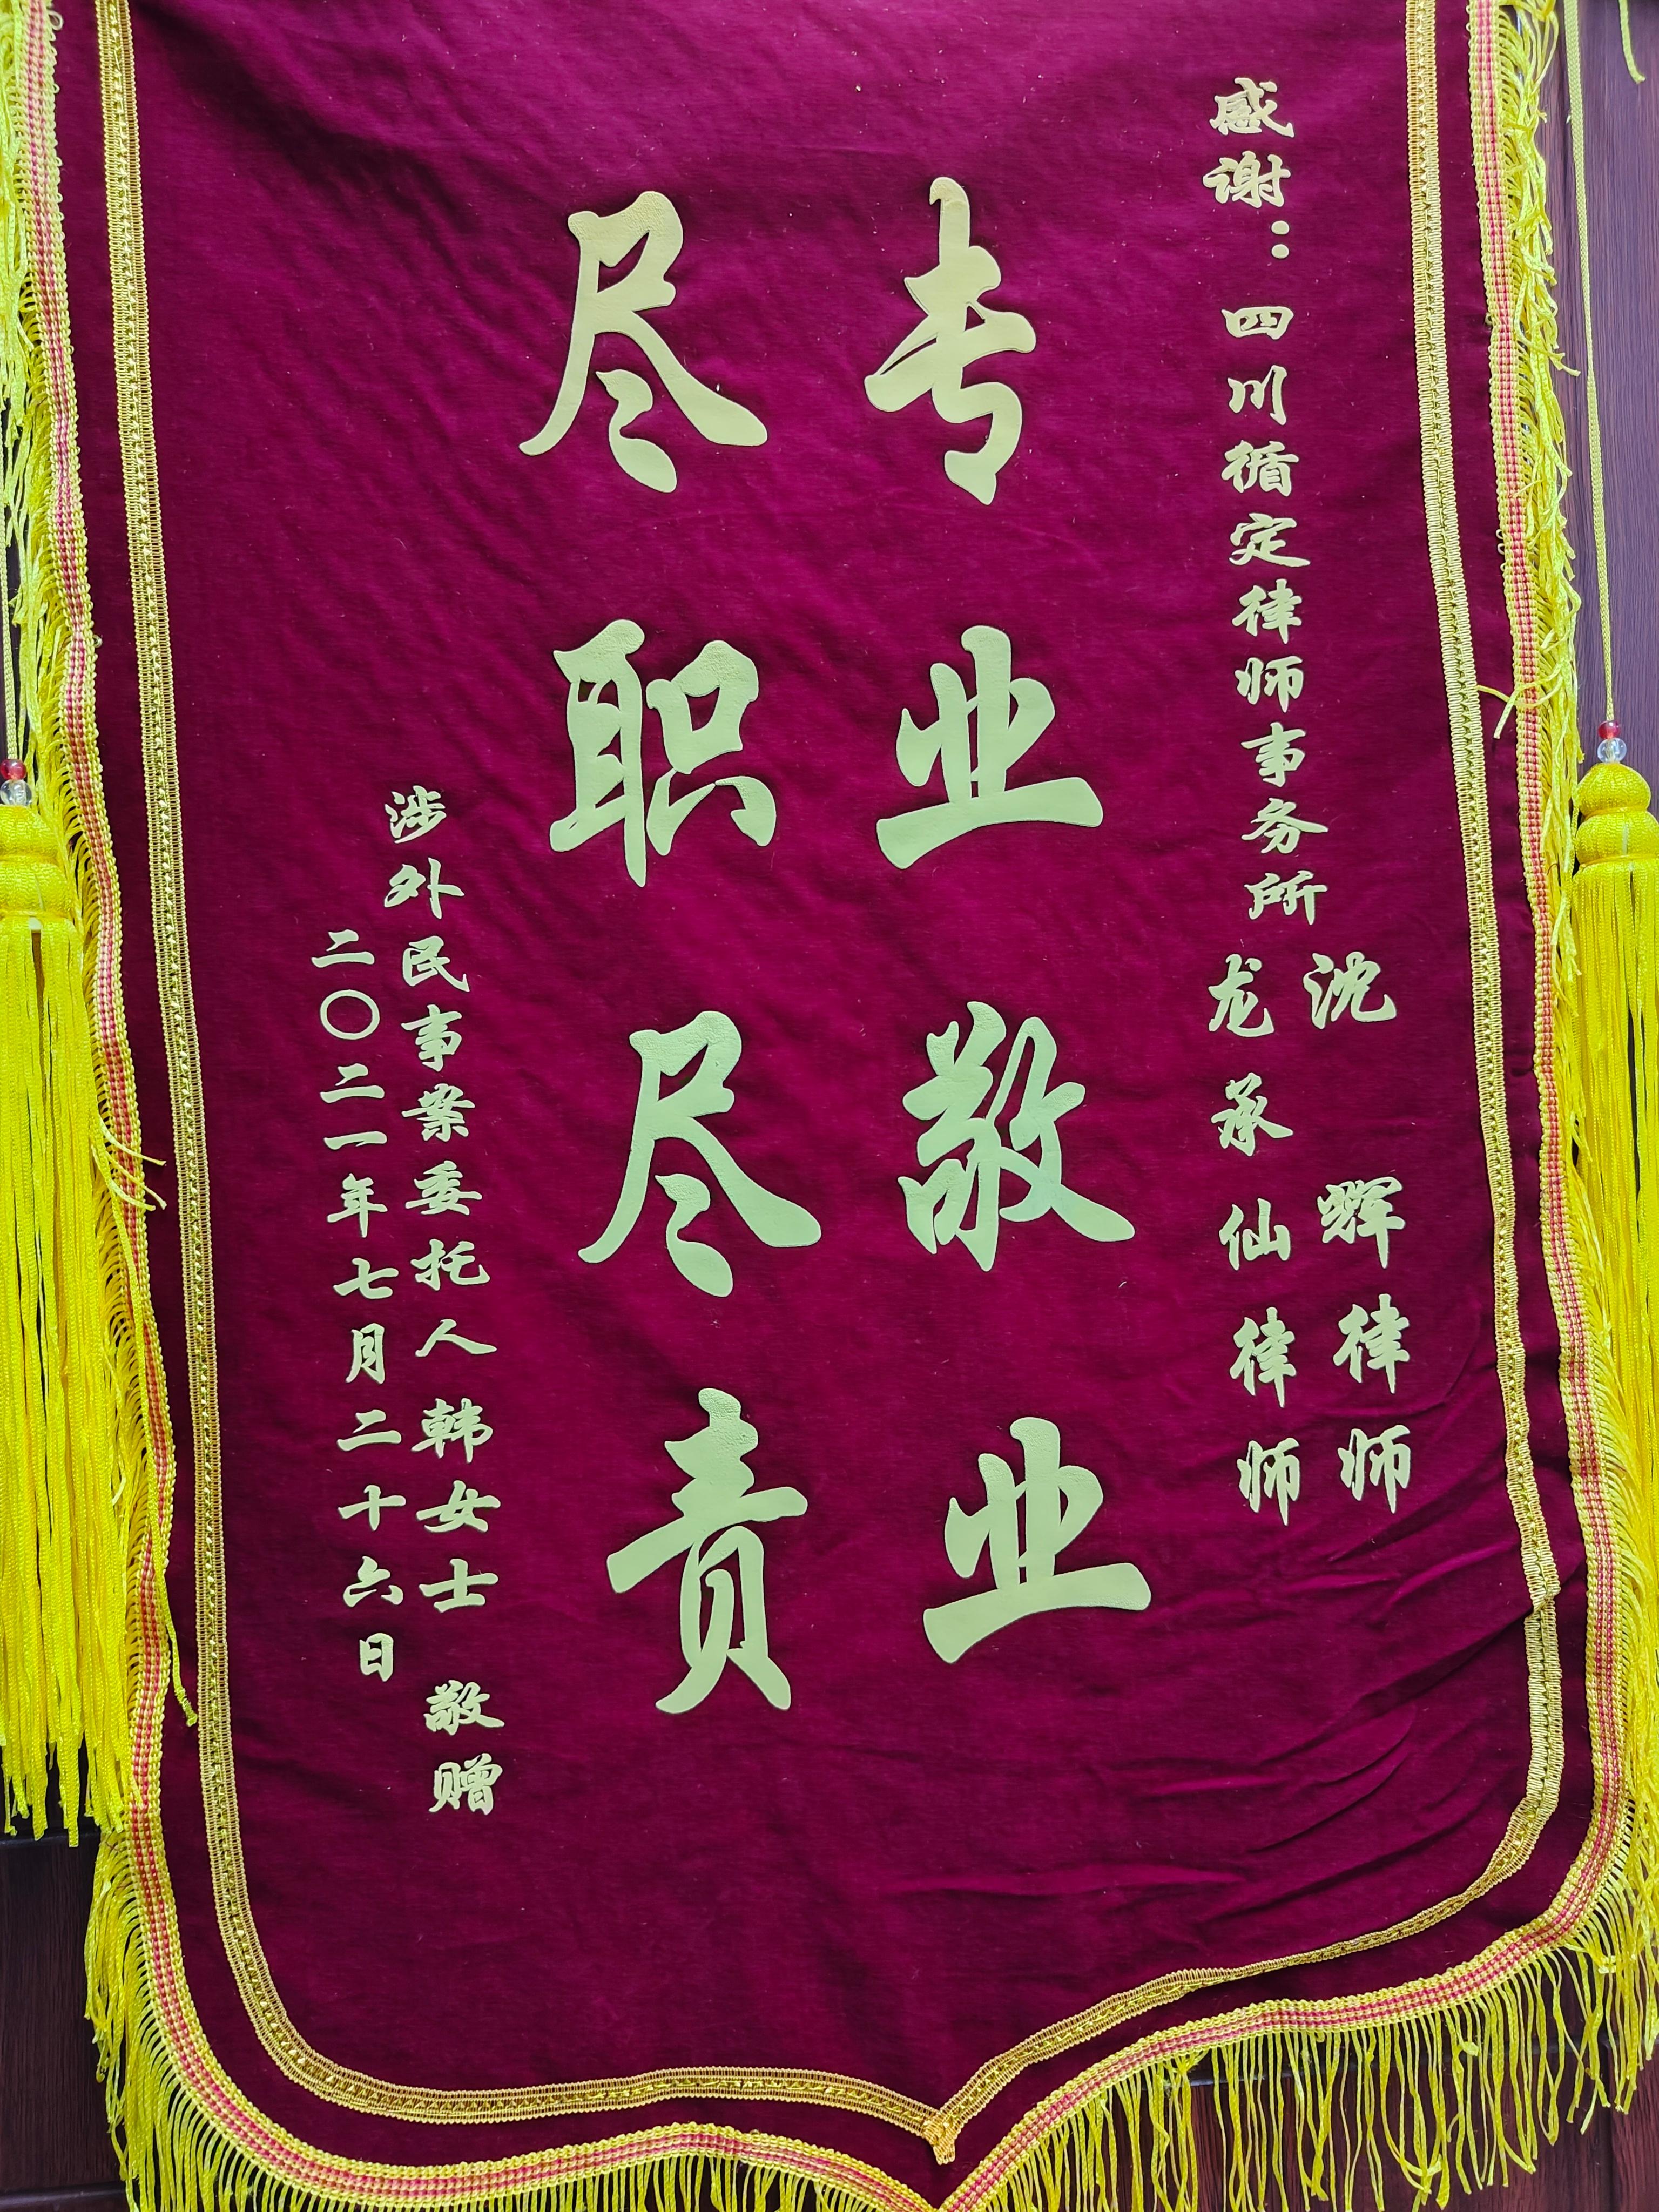 感谢：四川循定律师事务所
沈辉律师
龙承仙律师
专业敬业
尽职尽责
涉外民事案委托人韩女士 敬赠
二〇二一年七月二十六日